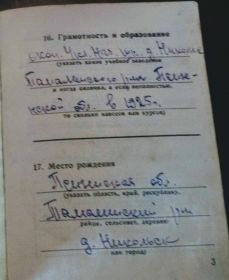 16. Грамотность и образование
окон. Нач. шк. д. Никольск
(указать какое учебное заведение
Тамалинского р-на Пензе-
и когда окончил, а если неполностью,
нской обл. в 1925 г.
то сколько классов или курсов)
17. Место рождения
Пензенская обл.
(указать область, край, республику,
Тамалинский р-н
район, сельсовет, деревню
д. Никольск
или город)
3